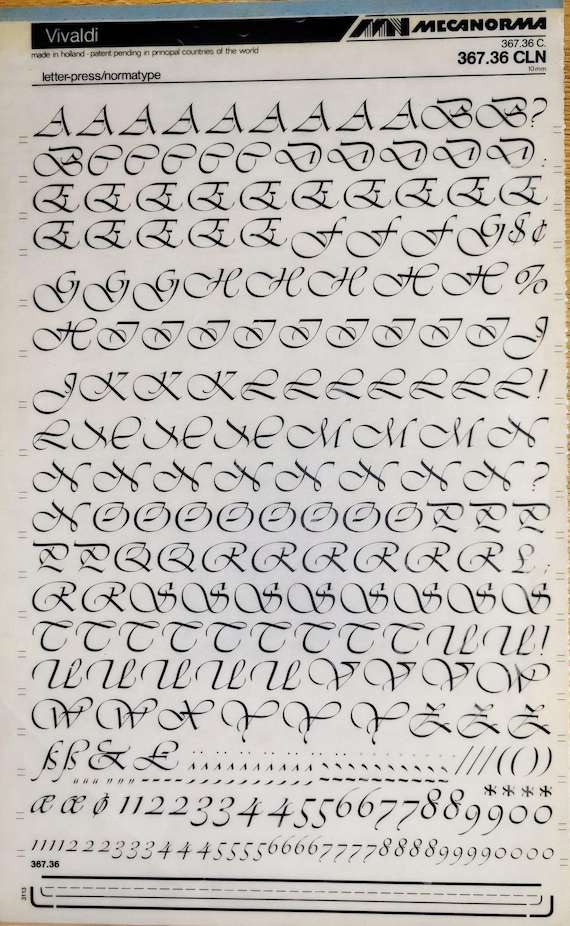 Vivaldi
MECANORMA
made in holland · patent pending in principal countries of the world
367.36 C.
367.36 CLN
10mm
letter-press/normatype
A A A A A A A A A B B ?
B C C C C C D D D D D .
E E E E E E E E E E
E E E E E F F F G $ ¢
G G G H H H H H %
H I I I I I I I I I J
J K K K L L L L L L !
L M M M M N
N N N N N N N N ?
N O O O O O O O P P P
P P Q Q R R R R R R £ ;
R R S S S S S S S S
T T T T T T T T U U !
U U U U U V V V W
W W X Y Y Y Z Z Z
ß ß & £ / / / ( ( ) )
* * * *
æ æ 1 1 2 2 3 3 4 4 5 5 6 6 7 7 8 8 9 9 0 0
1 1 1 1 2 2 2 2 3 3 3 3 4 4 4 4 5 5 5 5 6 6 6 6 7 7 7 7 8 8 8 8 9 9 9 9 0 0 0 0
367.36
3113